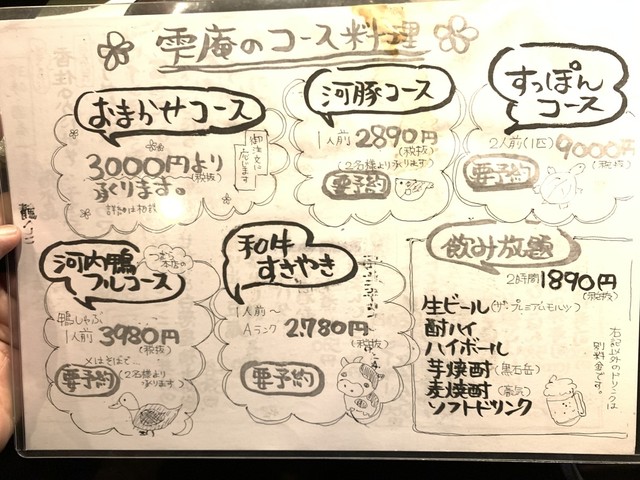 雫庵のコース料理
おまかせコース
3000円より
(税抜)
承ります。
御注文に
応じます
河豚コース
1人前 2890円
(税抜)
(2名様より承ります)
要予約
すっぽん
コース
2人前(1匹) 9000円
(税抜)
要予約
河内鴨
フルコース
つむら
本店の
鴨しゃぶ
1人前 3980円
(税抜)
〆はそばで…
要予約
(2名様より
承ります)
和牛
すきやき
1人前〜
Aランク 2.780円
(税抜)
要予約
飲み放題
2時間 1890円
(税抜)
生ビール(ザ・プレミアムモルツ)
酎ハイ
ハイボール
芋焼酎(黒石岳)
麦焼酎
ソフトドリンク
右記以外のドリンクは
別料金です。